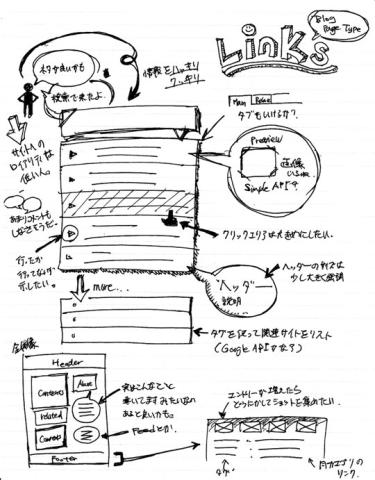 Links
Blog
Page Type
ネタが良いかも
検索で来たよ。
情報をハッキリ
クッキリ
Main
タブもいけるか?
サイトへの
ロイアリティは
低い人。
Preview
画像
Simple APIで
あまりコメントも
しなさそうだ。
クリックエリアは大きめにしたい。
行ったか
行ってないか
示したい。
more...
ヘッダー
説明
ヘッダーのサイズは
少し大きく強調
タグを使って関連サイトをリスト
(Google APIかな?)
全体像
Header
Contents
About
related
Footer
実はこんなこと
書いてますみたいなの
あると良いかも。
Feedとか。
エントリーが増えたら
どうにかしてショットを集めたい。
タグ
カテゴリの
リンク.